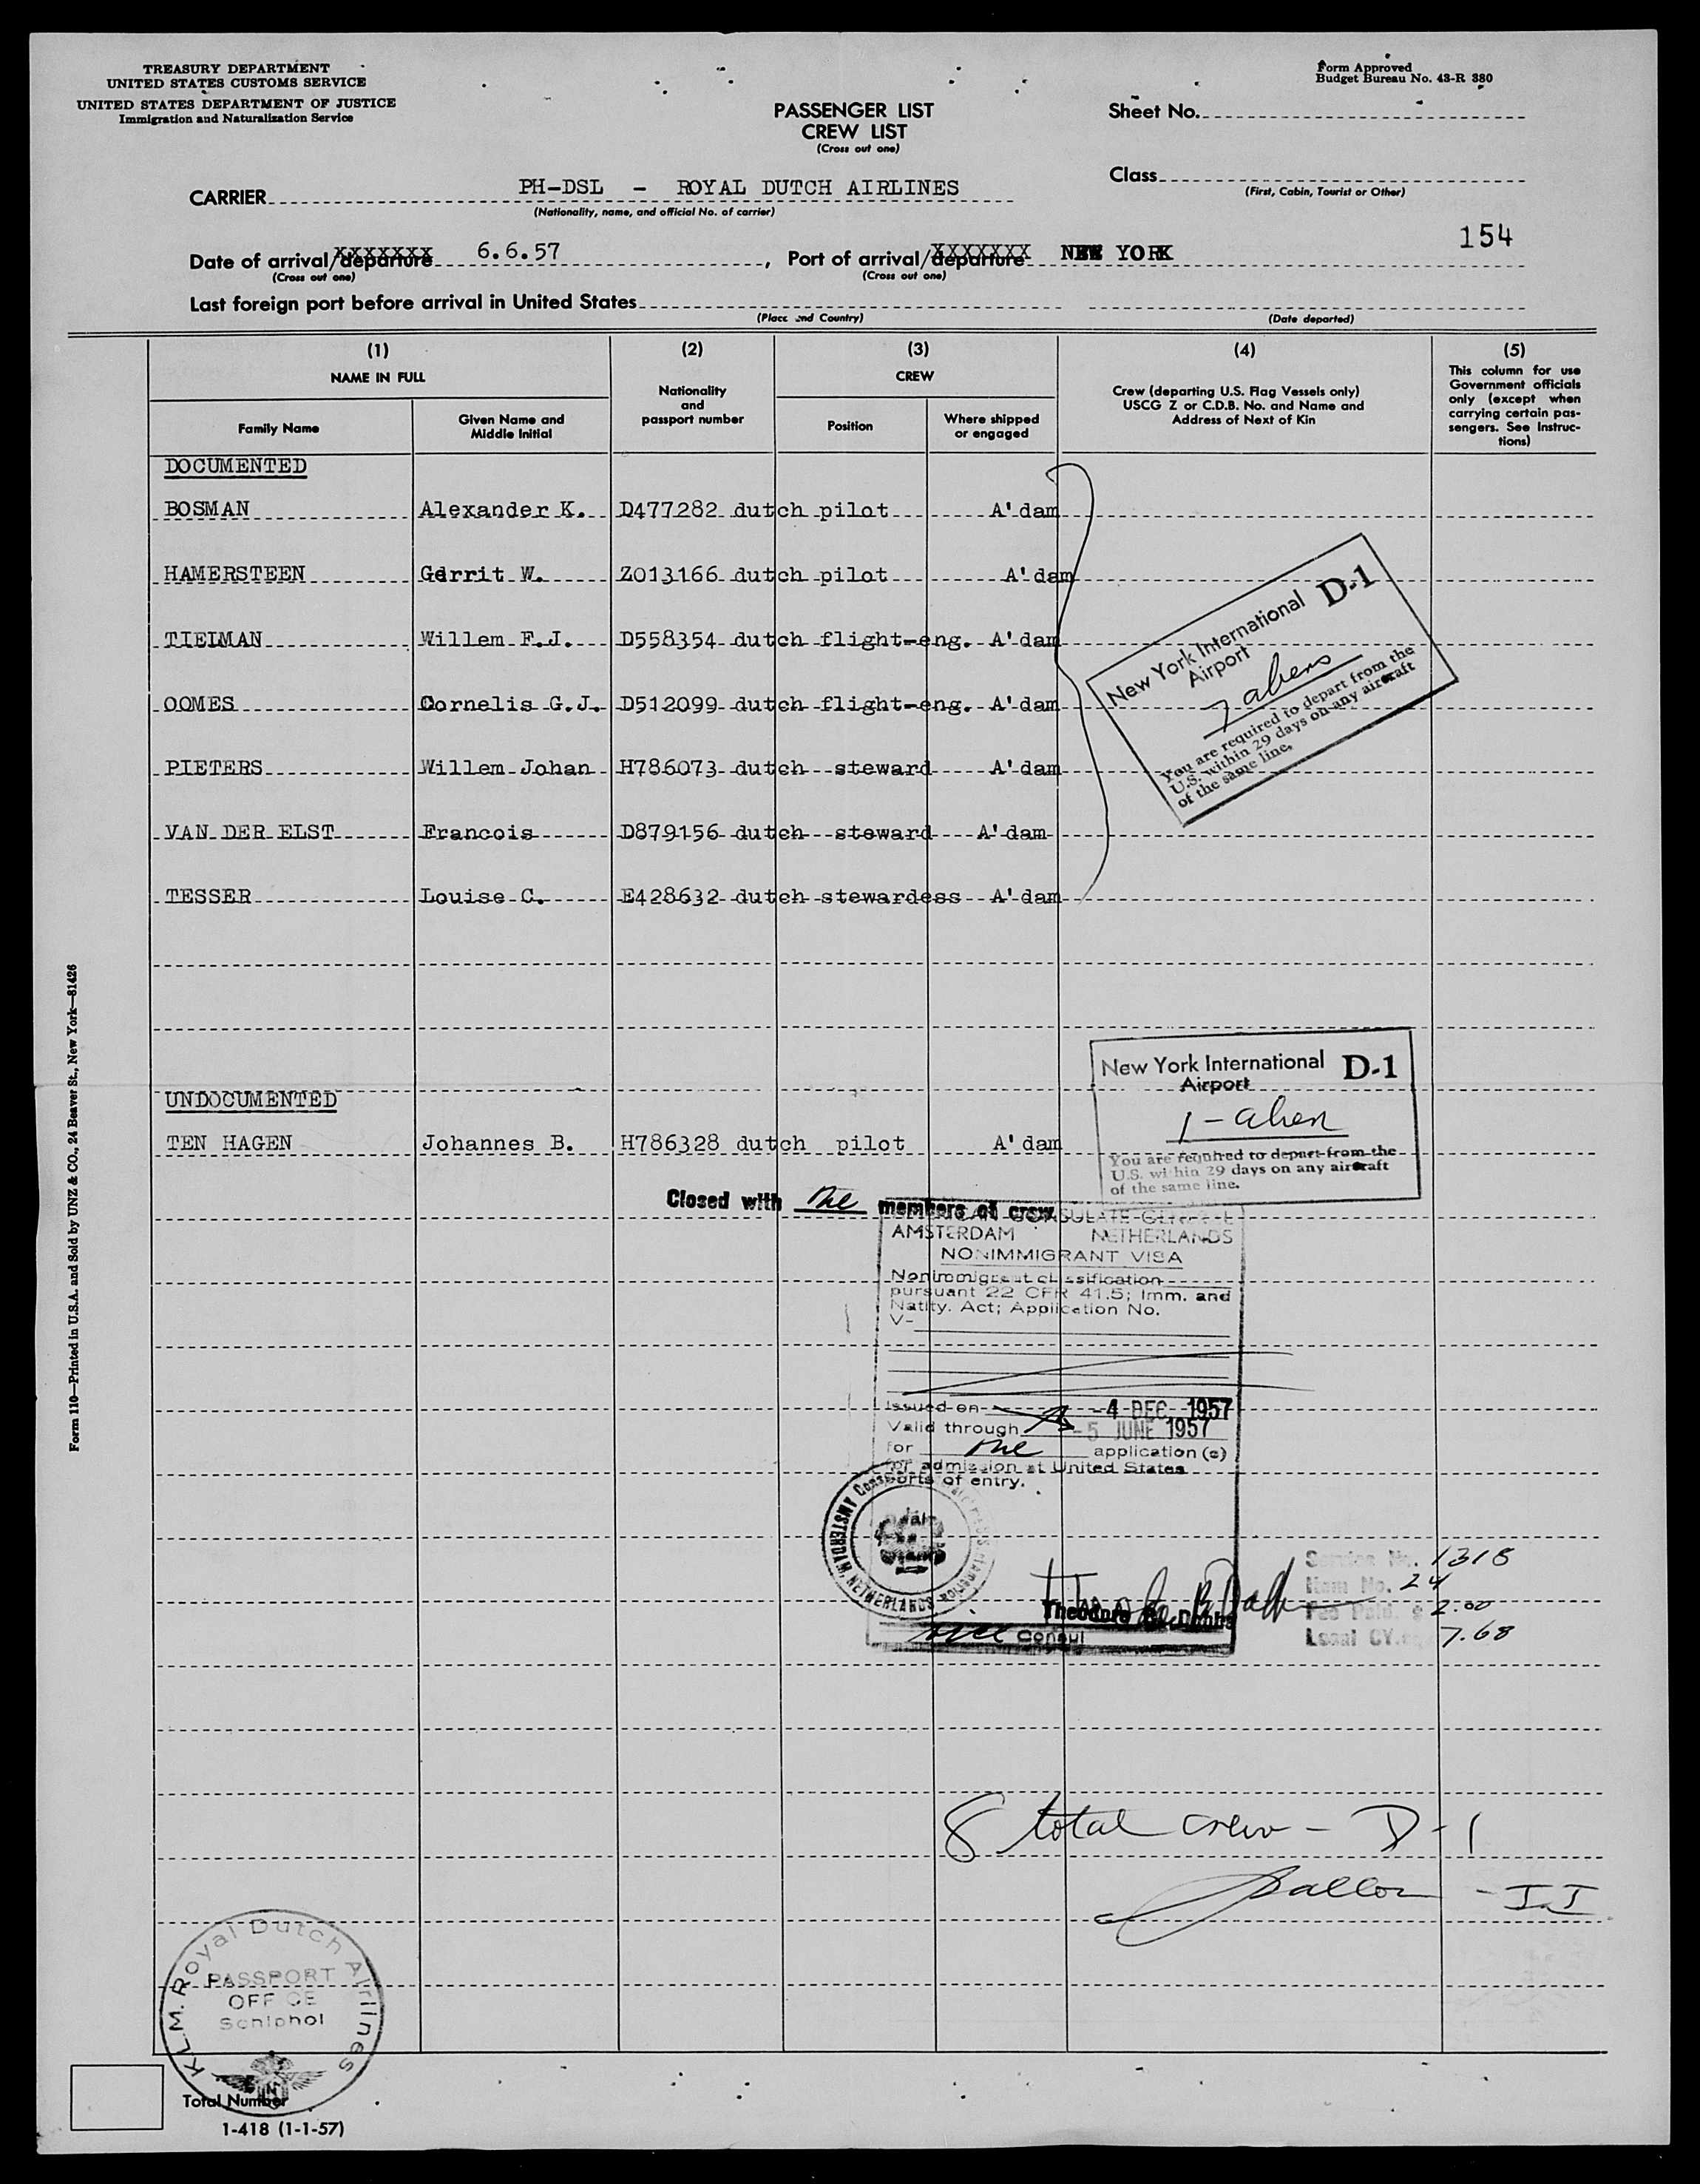 TREASURY DEPARTMENT
UNITED STATES CUSTOMS SERVICE
UNITED STATES DEPARTMENT OF JUSTICE
Immigration and Naturalization Service
Form Approved
Budget Bureau No. 43-R 380
PASSENGER LIST
CREW LIST
(Cross out one)
Sheet No.
Class
(First, Cabin, Tourist or Other)
CARRIER PH-DSL - ROYAL DUTCH AIRLINES
(Nationality, name, and official No. of carrier)
154
Date of arrival/departure 6.6.57, Port of arrival/departure NEW YORK
(Cross out one) (Cross out one)
Last foreign port before arrival in United States
(Place and Country) (Date departed)
(1) (2) (3) (4) (5)
NAME IN FULL
Family Name
Given Name and
Middle Initial
Nationality
and
passport number
CREW
Position
Where shipped
or engaged
Crew (departing U.S. Flag Vessels only)
USCG Z or C.D.B. No. and Name and
Address of Next of Kin
This column for use
Government officials
only (except when
carrying certain pas-
sengers. See Instruc-
tions)
DOCUMENTED
BOSMAN Alexander K. D477282 dutch pilot A'dam
HAMERSTEEN Gerrit W. Z013166 dutch pilot A'dam
TIELMAN Willem F.J. D558354 dutch flight-eng. A'dam
OOMES Cornelis G.J. D512099 dutch flight-eng. A'dam
PIETERS Willem Johan H786073 dutch steward A'dam
VAN DER ELST Francois D879156 dutch steward A'dam
TESSER Louise C. E428632 dutch stewardess A'dam
New York International D-1
Airport
7 aliens
You are required to depart from the
U.S. within 29 days on any aircraft
of the same line.
UNDOCUMENTED
TEN HAGEN Johannes B. H786328 dutch pilot A'dam
New York International D-1
Airport
1 - alien
You are required to depart from the
U.S. within 29 days on any aircraft
of the same line.
Closed with one members of crew
AMERICAN CONSULATE GENERAL
AMSTERDAM NETHERLANDS
NONIMMIGRANT VISA
Nonimmigrant classification
pursuant 22 CFR 41.5; Imm. and
Natity. Act; Application No.
V-
Issued on -4 DEC 1957
Valid through -5 JUNE 1957
for one application (s)
for admission at United States
ports of entry.
AMSTERDAM, NETHERLANDS
Theodore B. Dobbs
vice Consul
Service No. 1318
Item No. 24
Fee Paid. $ 2.00
Local CY. 7.68
8 total crew - D-1
- I.I
K.L.M. Royal Dutch Airlines
PASSPORT
OFFICE
Schiphol
Total Number
1-418 (1-1-57)
Form 110—Printed in U.S.A. and Sold by UNZ & CO., 24 Beaver St., New York—81426